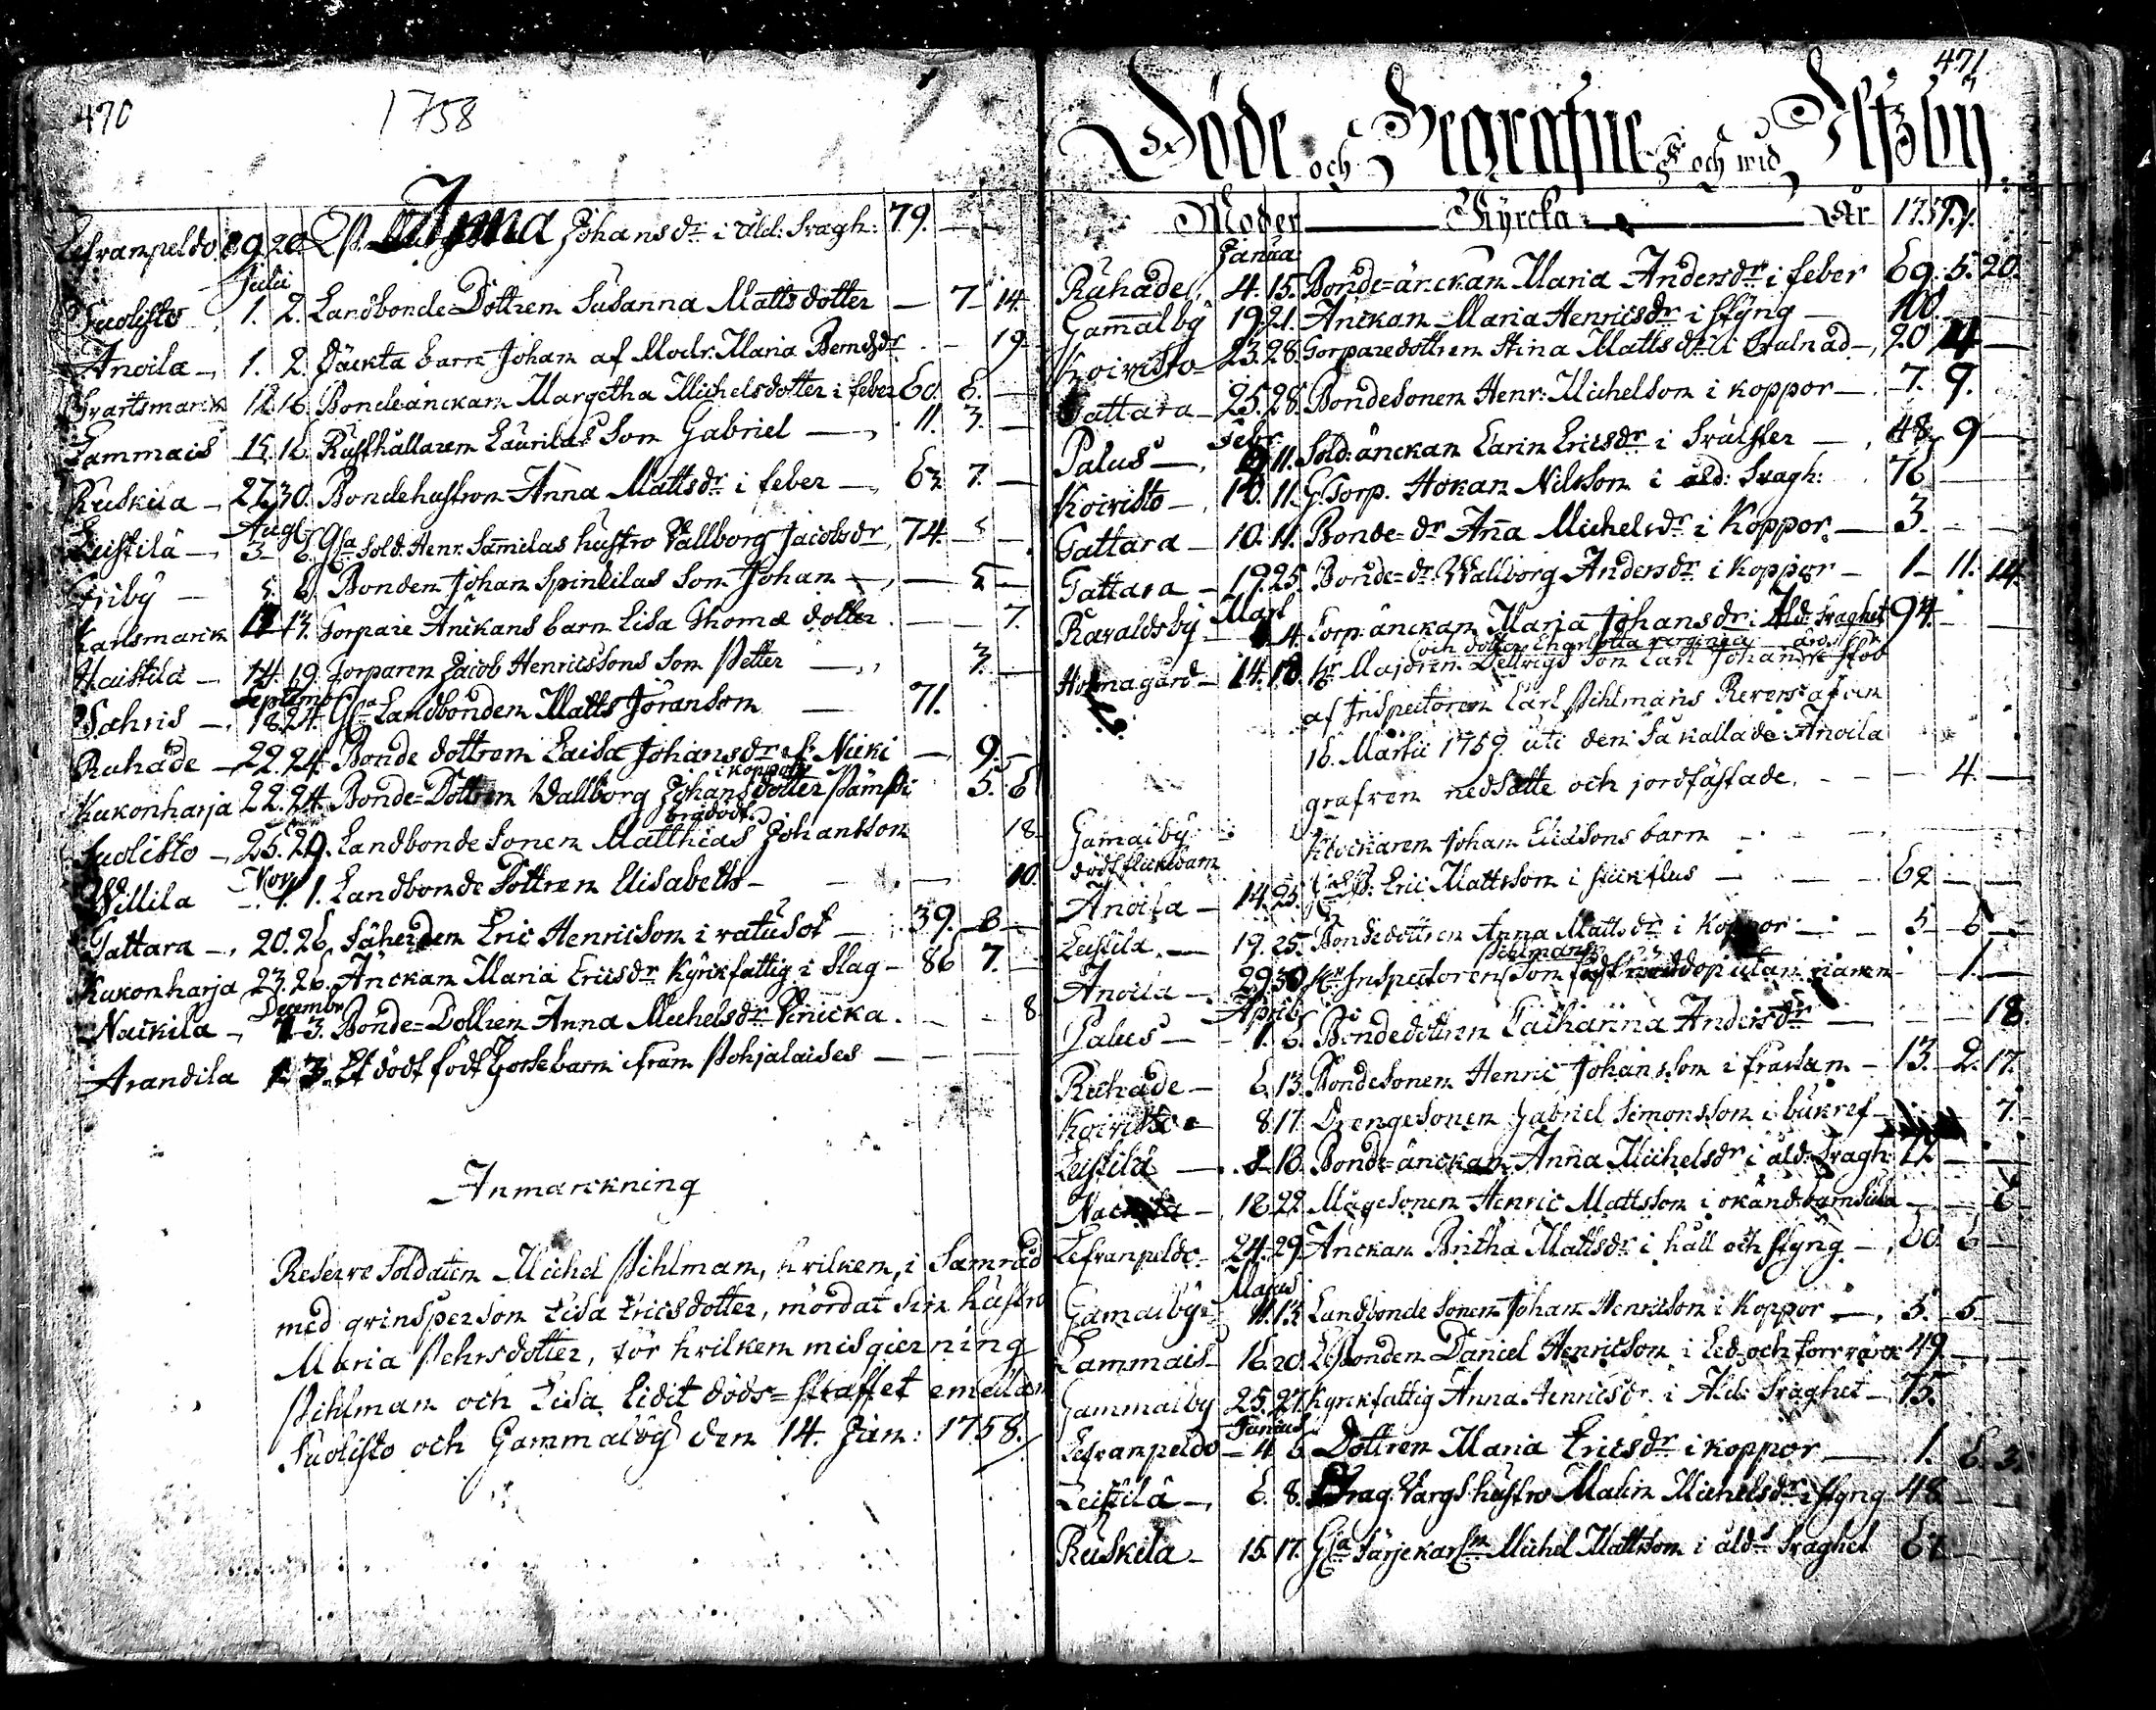 470
1758
Lefranpeldo 19. 20. Anna Johans dr i åld: Swagh: 79. — —
Julii
Suolisto 1. 2. Landbonde Dottren Susanna Matts dotter — 7 14.
Anoila — 1. 2. Oäckta barn Johan af Modr. Maria Bernds dr — 19
Svartsmarck 12. 16. Bonde änckan Margetha Michelsdotter i feber 60. 6. —
Lammais 15. 16. Rusthållaren Laurilas Son Gabriel — 11. 3. —
Ruskila — 27. 30. Bondehustron Anna Matts dr i feber — 63 7. —
Augt
Leistilä — 3. 6. Gla Sold. Henr. Samilas hustro Vallborg Jacobs dr 74 — —
Friby — 5. 6. Bonden Johan Spinkilas Son Johan — — 5 —
Karlsmarck 11 13. Torpare Änckans barn Lisa Thomæ dotter — — 7.
Haistila — 14. 19. Torparen Jacob Henricssons Son Petter — 3. —
Septemb
Sahris — 18. 24. Gla Landbonden Matts Jöranson — 71.
Ruhade — 22. 24. Bonde dottren Caisa Johans dr f. Nicki — 9. —
i koppor
Kukonharja 22. 24. Bonde=Dottren Wallborg Johans dotter Pämpi 5. 6
brådödt
Suolisto — 25. 29. Landbonde Sonen Matthias Johansson 18
Nov
Willila — 1. 1. Landbonde Dottren Elisabeth — — 10.
Tattara — 20. 26. Fäherden Eric Henricson i vatusot — 39. 8 —
Kukonharja 23. 26. Änckan Maria Erics dr Kyrkfattig i Slag — 86 7. —
Decembr
Nackila — 1 3. Bonde=Dottren Anna Michels dr Vinicka. — — 8
Arandila 1. 3. Et dödt födt Gossebarn ifrån Pohjalaises —
Anmarckning
Reserve Soldaten Michel Pihlman, hvilken, i Samråd
med qvinsperson Lisa Ericsdotter, mördat sin hustro
Maria Pehrsdotter, för hvilken misgierning
Pihlman och Lisa lidit döds=straffet emellan
Suolisto och Gammalby den 14. Jan: 1758.
471
Döde och Begrafne och wid Ulfsby
Moder Kyrcka År 1759.
Janua:
Ruhade, 4. 15. Bonde=änckan Maria Anders dr i feber 69. 5. 20.
Gamalby 19. 21. Änckan Maria Henrics dr i styng — 100. —
Koivisto 23. 28. Torparedottren Stina Matts dr i 20 4 —
Tattara — 25. 28. Bondesonen Henr: Michelson i koppor — 7. 9.
Febr
Palus — 11. Sold: änckan Carin Erics dr i Svulster — 48 9 —
Koivisto — 10. 11. G. Torp. Håkan Nilsson i åld: Swagh: 76 —
Tattara — 10. 11. Bonde=dr Anna Michels dr i Koppor. — 3. —
Tattara — 19. 25. Bonde=dr Wallborg Anders dr i koppor — 1 — 11. 14.
Mart
Ravaldsby — 4. Torp: änckan Maria Johans dr i Ald: Swaghet 94
och dotter Charlotta
Holmagård — 14. 18. Hr Majoren Son Carl Johan
af Inspectoren Carl Pihlmans Revers af den
16. Martii 1759. uti den så kallade Anoila
grafven nedsatte och jordfästade. — — 4. —
Gamalby Klockaren Johan Elicsons barn
dödt flickebarn
Anoila — 14. 25. Eric Mattsson i — 62 — —
Leistila — 19. 25. Bondedottren Anna Matts dr i Koppor — 5 6 —
Pihlmans
Anoila — 29. 30. Hr Inspectoren Son — 1. —
April
Palus — 1. 6. Bondedottren Catharina Anders dr — — 18.
Ruhade — 6. 13. Bondesonen Henric Johansson i frassan — 13. 2. 17.
Koivisto — 8. 17. Drengesonen Gabriel Simonsson i bukref — 7.
Leistilä — 8. 13. Bonde=änckan Anna Michels dr i åld. Swagh: 72 — —
Nackila — 18. 22. Mågesonen Henric Mattsson i okänd barnsiuka — — 6
Lefranpeldo — 24. 29. Änckan Britha Matts dr i håll och styng — 60. 6 —
Majus
Gamalby 11. 13. Landbonde Sonen Johan Henricson i Koppor — 5. 5. —
Lammais — 16. 20. Bonden Daniel Henricson i Led= och torrvärck 49 — —
Gammalby 25. 27. Kyrckfattig Anna Henrics dr i Ald: Swaghet — 75.
Junius
Lefranpeldo — 4 6. Dottren Maria Erics dr i koppor — 1. 6. 3.
Leistila — 6. 8. Drag. Vargs hustro Malin Michels dr i styng 48 — —
Ruskila — 15. 17. Gla Färjekarln Michel Mattsson i åld: Swaghet — —